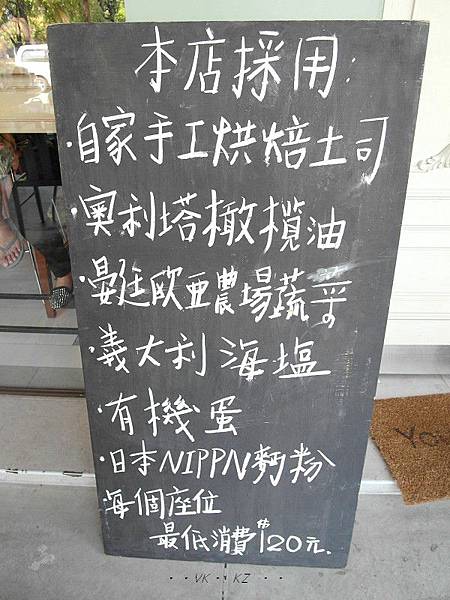 本店採用:
·自家手工烘焙土司
·奧利塔橄欖油
·晏廷歐亞農場蔬菜
·義大利海塩
·有機蛋
·日本NIPPN麵粉
每個座位
最低消費$120元.
··VK··KZ ··